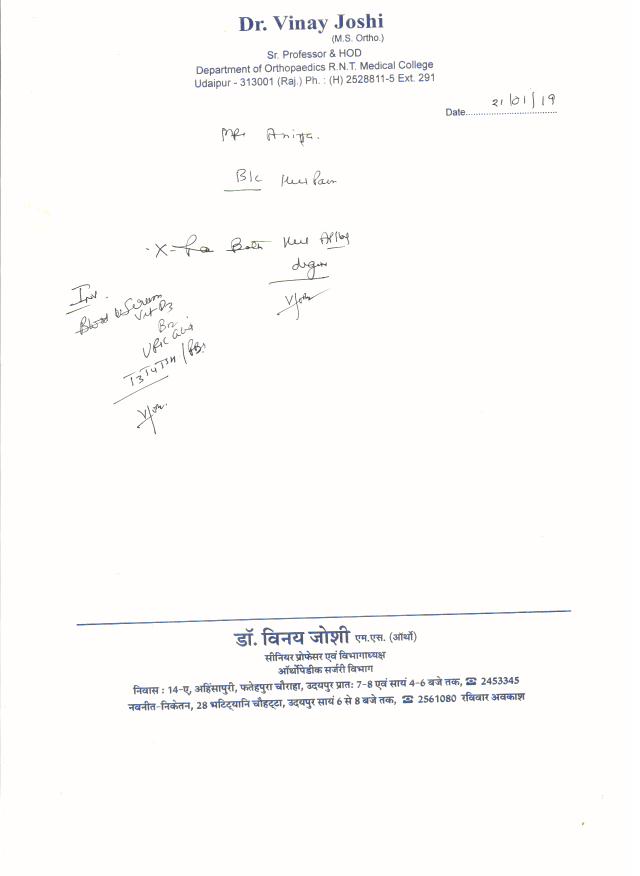 Dr. Vinay Joshi
(M.S. Ortho.)
Sr. Professor & HOD
Department of Orthopaedics R.N.T. Medical College
Udaipur - 313001 (Raj.) Ph. : (H) 2528811-5 Ext. 291
Date 21/01/19
B/L Knee Pain
X-Ra Both Knee AP/lat
Inv.
Blood Serum
Vit D3
B12
Uric acid
T3T4TSH
डॉ. विनय जोशी एम.एस. (ऑर्थो)
सीनियर प्रोफेसर एवं विभागाध्यक्ष
ऑर्थोपेडीक सर्जरी विभाग
निवास : 14-ए, अहिंसापुरी, फतेहपुरा चौराहा, उदयपुर प्रातः 7-8 एवं सायं 4-6 बजे तक, ☎ 2453345
नवनीत-निकेतन, 28 भटि्टयानि चौहट्टा, उदयपुर सायं 6 से 8 बजे तक, ☎ 2561080 रविवार अवकाश